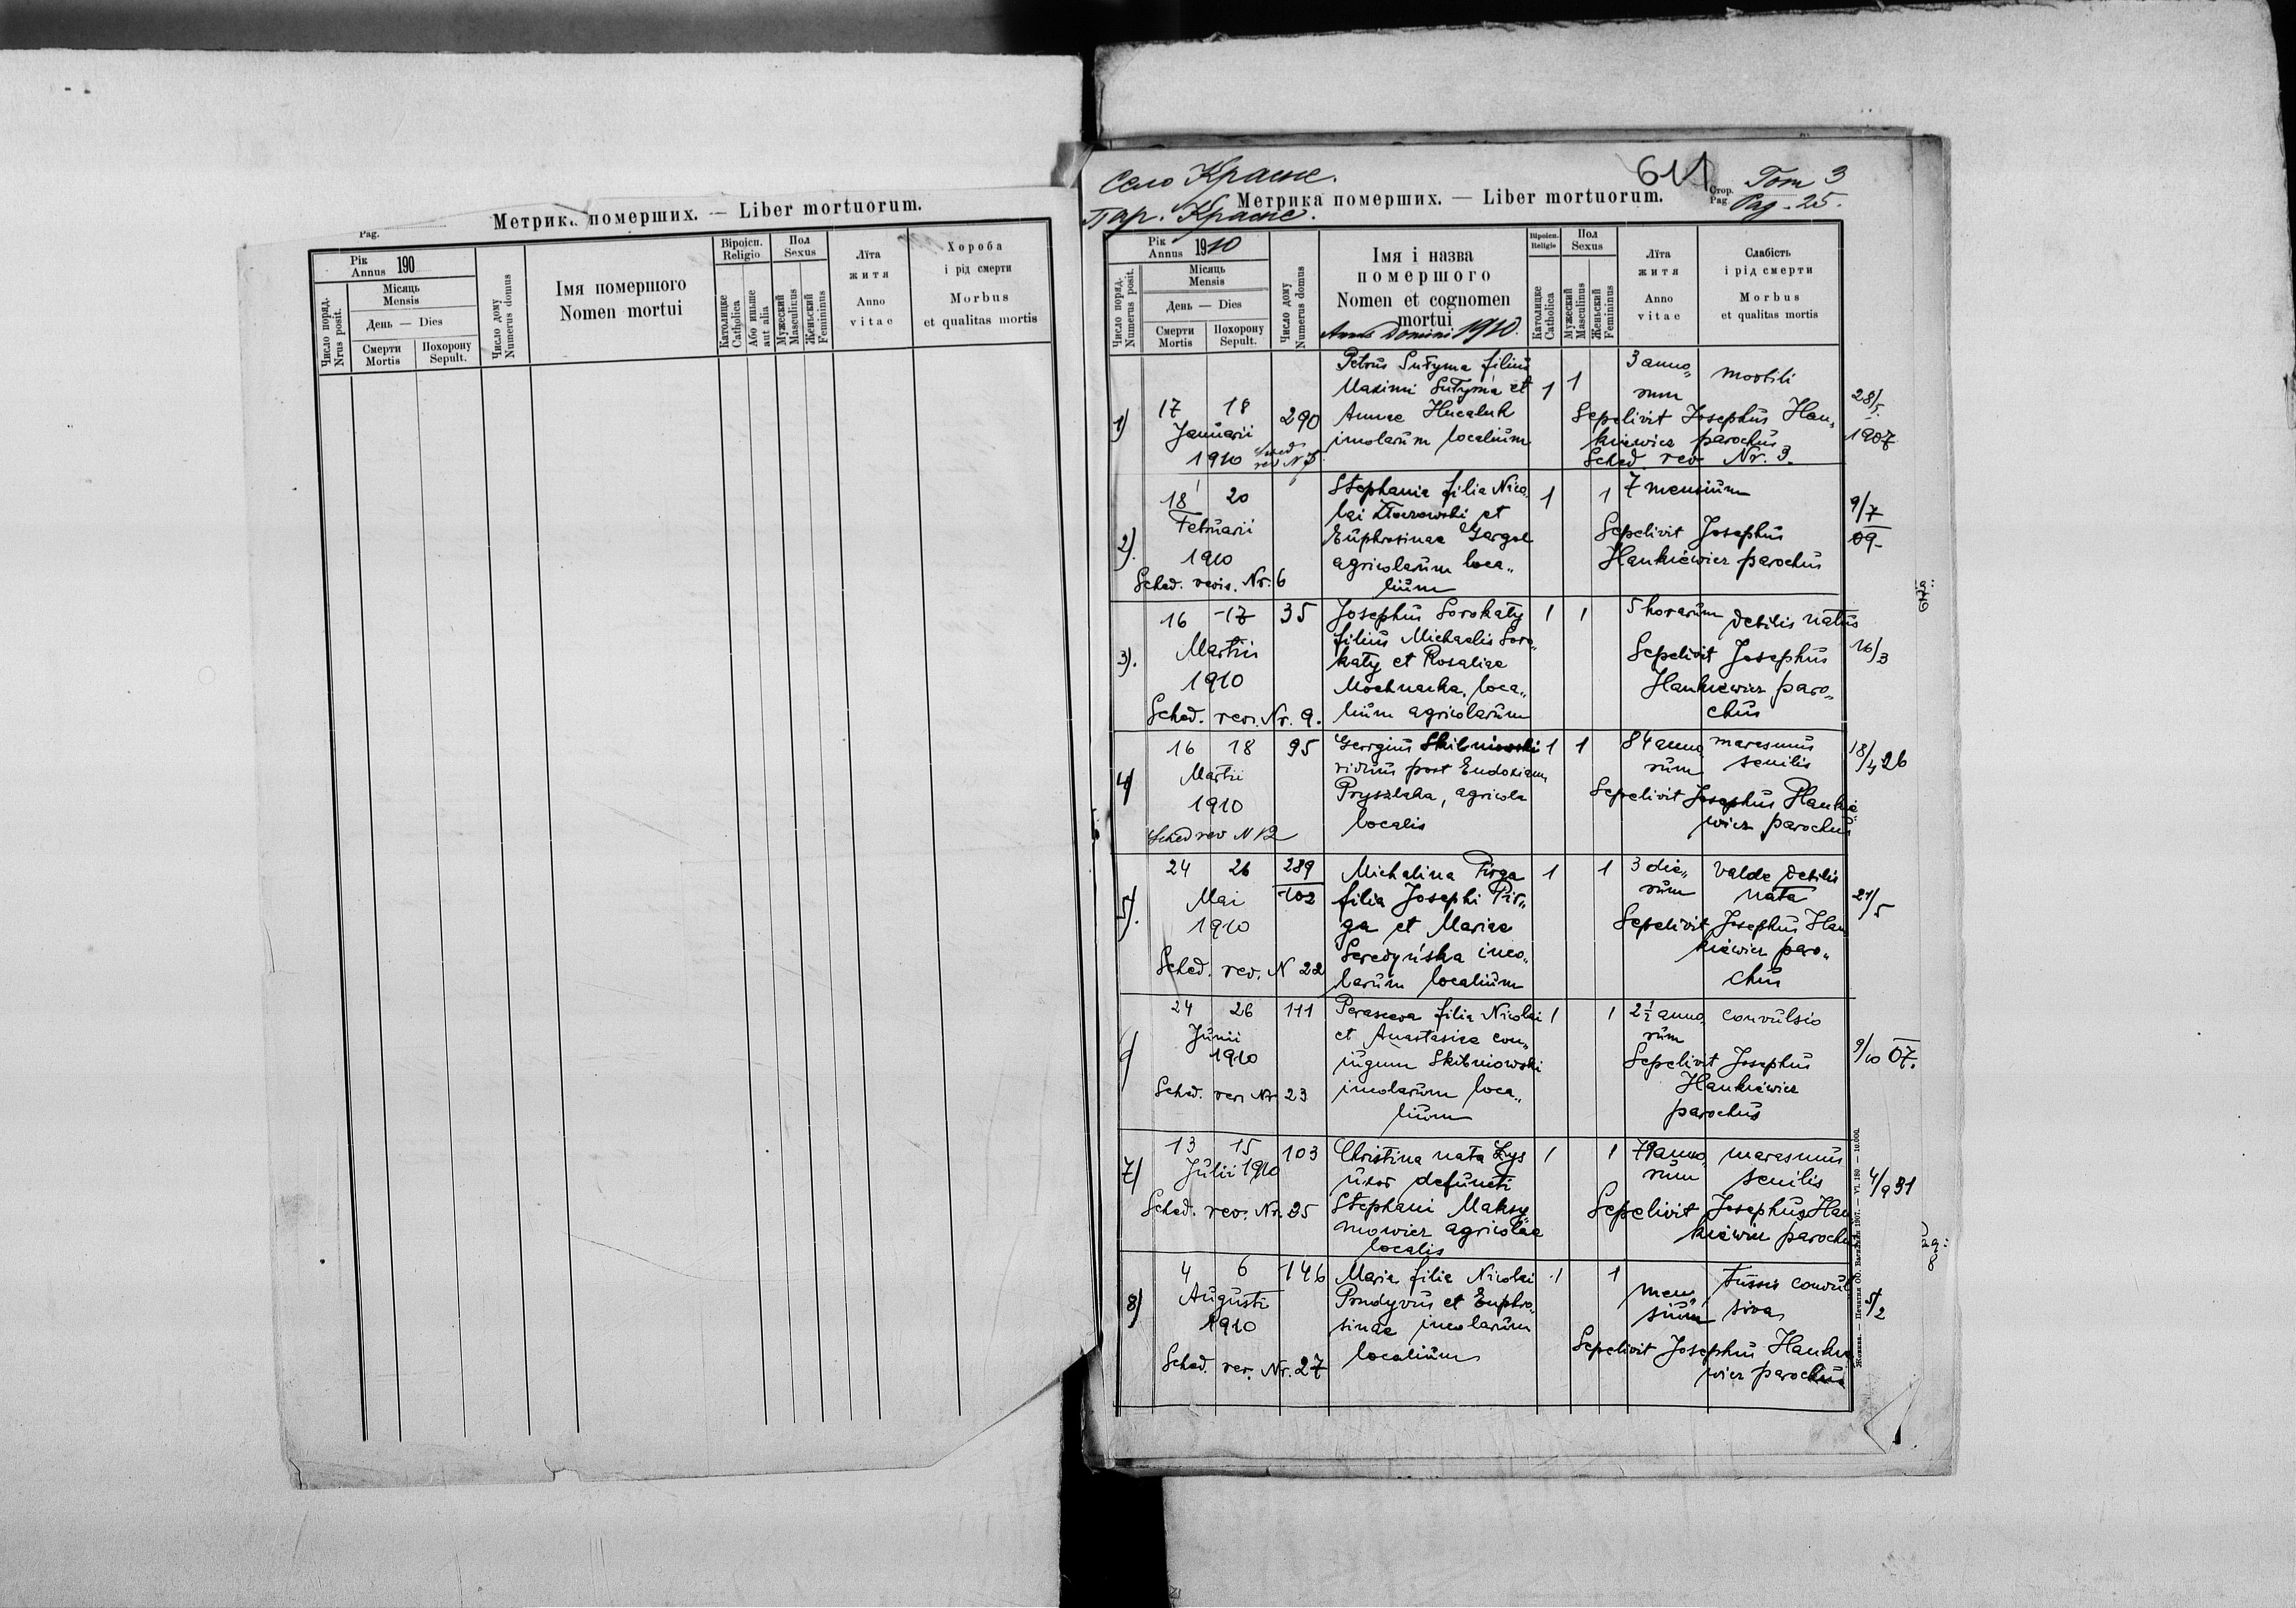 Метрика померших. — Liber mortuorum.
Pag.
Рік
Annus 190
Число поряд.
Nrus posit.
Місяць
Mensis
День — Dies
Смерти
Mortis
Похорону
Sepult.
Число дому
Numerus domus
Імя помершого
Nomen mortui
Віроісп.
Religio
Католицке
Catholica
Або иньше
aut alia
Пол
Sexus
Мужеский
Masculinus
Женьский
Femininus
Лїта
житя
Anno
vitae
Хороба
і рід смерти
Morbus
et qualitas mortis
Село Красне.
611
Том 3
Метрика померших. — Liber mortuorum.
Стор.
Pag.
Pag. 25.
Пар. Красне.
Рік
Annus 1910
Число поряд.
Numerus posit.
Місяць
Mensis
День — Dies
Смерти
Mortis
Похорону
Sepult.
Число дому
Numerus domus
Імя і назва
помершого
Nomen et cognomen
mortui
Anno Domini 1910.
Віроісп.
Religio
Католицке
Catholica
Пол
Sexus
Мужеский
Masculinus
Женьский
Femininus
Лїта
житя
Anno
vitae
Слабість
і рід смерти
Morbus
et qualitas mortis
1) 17 18 290
Januarii
1910
Petrus Sutyma filius
Maximi Sutyma et
Annae Hucaluk
incolarum localium
1 1 3 anno„
rum
morbili
Sepelivit Josephus Han„
kiewicz parochus
Sched. rev Nr. 3.
28/5.
1907
2). 18 20
Februarii
1910
Sched. revis. Nr. 6
Stephania filia Nico„
lai et
Euphrosinae Gargol
agricolarum loca„
lium
1 1 7 mensium
Sepelivit Josephus
Hankiewicz parochus
9/7
09-
3). 16 -17 35
Martii
1910
Sched. rev. Nr. 9.
Josephus Sorokaty
filius Michaelis Soro„
katy et Rosaliae
Mochnacka, loca„
lium agricolarum
1 1 5 horarum debilis natus
Sepelivit Josephus
Hankiewicz paro„
chus
16/3
4) 16 18 95
Martii
1910
Sched rev N 12
Georgius Skibniowski
viduus post Eudoxiam
Pryszlaka, agricola
localis
1 1 84 anno„
rum
marasmus
senilis
Sepelivit Josephus Hankie„
wicz parochus
18/4 26
5). 24 26 289
102
Mai
1910
Sched. rev. N 22
Michalina Pirga
filia Josephi Pir„
ga et Mariae
Seredyńska inco„
larum localium
1 1 3 die„
rum
valde debilis
nata
Sepelivit Josephus Han
kiewicz paro„
chus
21/5
6) 24 26 111
Junii
1910
Sched. rev Nr 23
Parascewa filia Nicolai
et Anastasiae con„
iugum Skibniowski
incolarum loca„
lium
1 1 2½ anno„
rum
convulsio
Sepelivit Josephus
Hankiewicz
parochus
9/10 07.
7) 13 15 103
Julii 1910
Sched. rev. Nr. 25
Christina nata Łys
uxor defuncti
Stephani Maksy„
mowicz agricolae
localis
1 1 79 anno„
rum
marasmus
senilis
Sepelivit Josephus Han
kiewicz parochus
4/9 31
8) 4 6 146
Augusti
1910
Sched. rev. Nr. 27
Maria filia Nicolai
Prudyvus et Euphro„
sinae incolarum
localium
1 1
men„
sium
tussis convul
siva
Sepelivit Josephus Hankie
wicz parochus
5/2